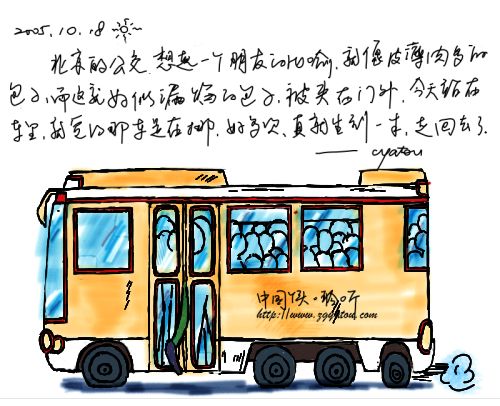 2005.10.18
北京的公交,想起一个朋友的比喻,就像皮薄肉多的
包子,而这就好似漏馅的包子,被夹在门外,今天站在
车里,就觉的那车是在挪,好多次,真就坐到一半,走回去了
—— cyatou
中国丫头·聆听
http://www.zgyatou.com